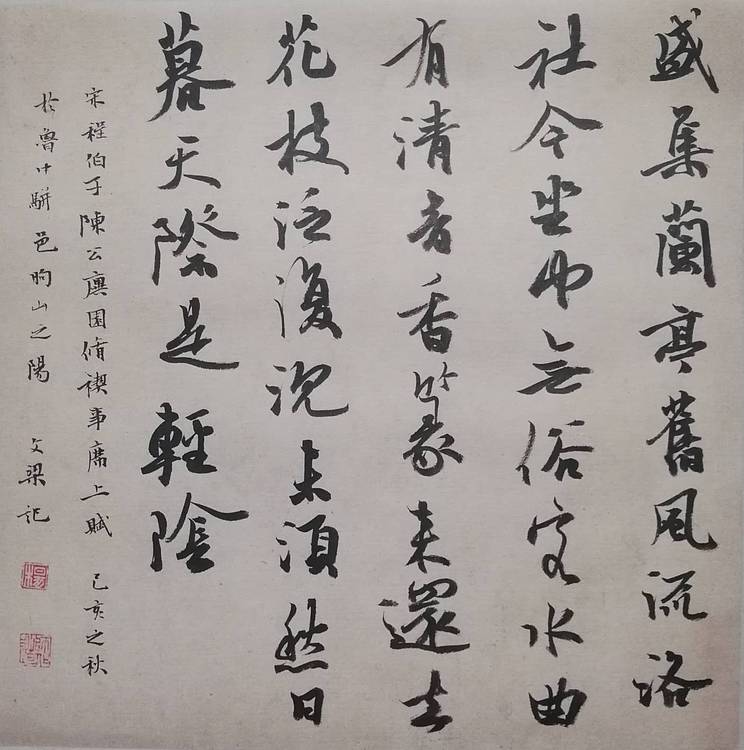 盛集蘭亭舊風流洛
社今坐中無俗客水曲
有清音香篆來還去
花枝泛復沉未須愁日
暮天際是輕陰
宋程伯子陳公廙園脩禊事席上賦 己亥之秋
於魯中駢邑朐山之陽 文梁記